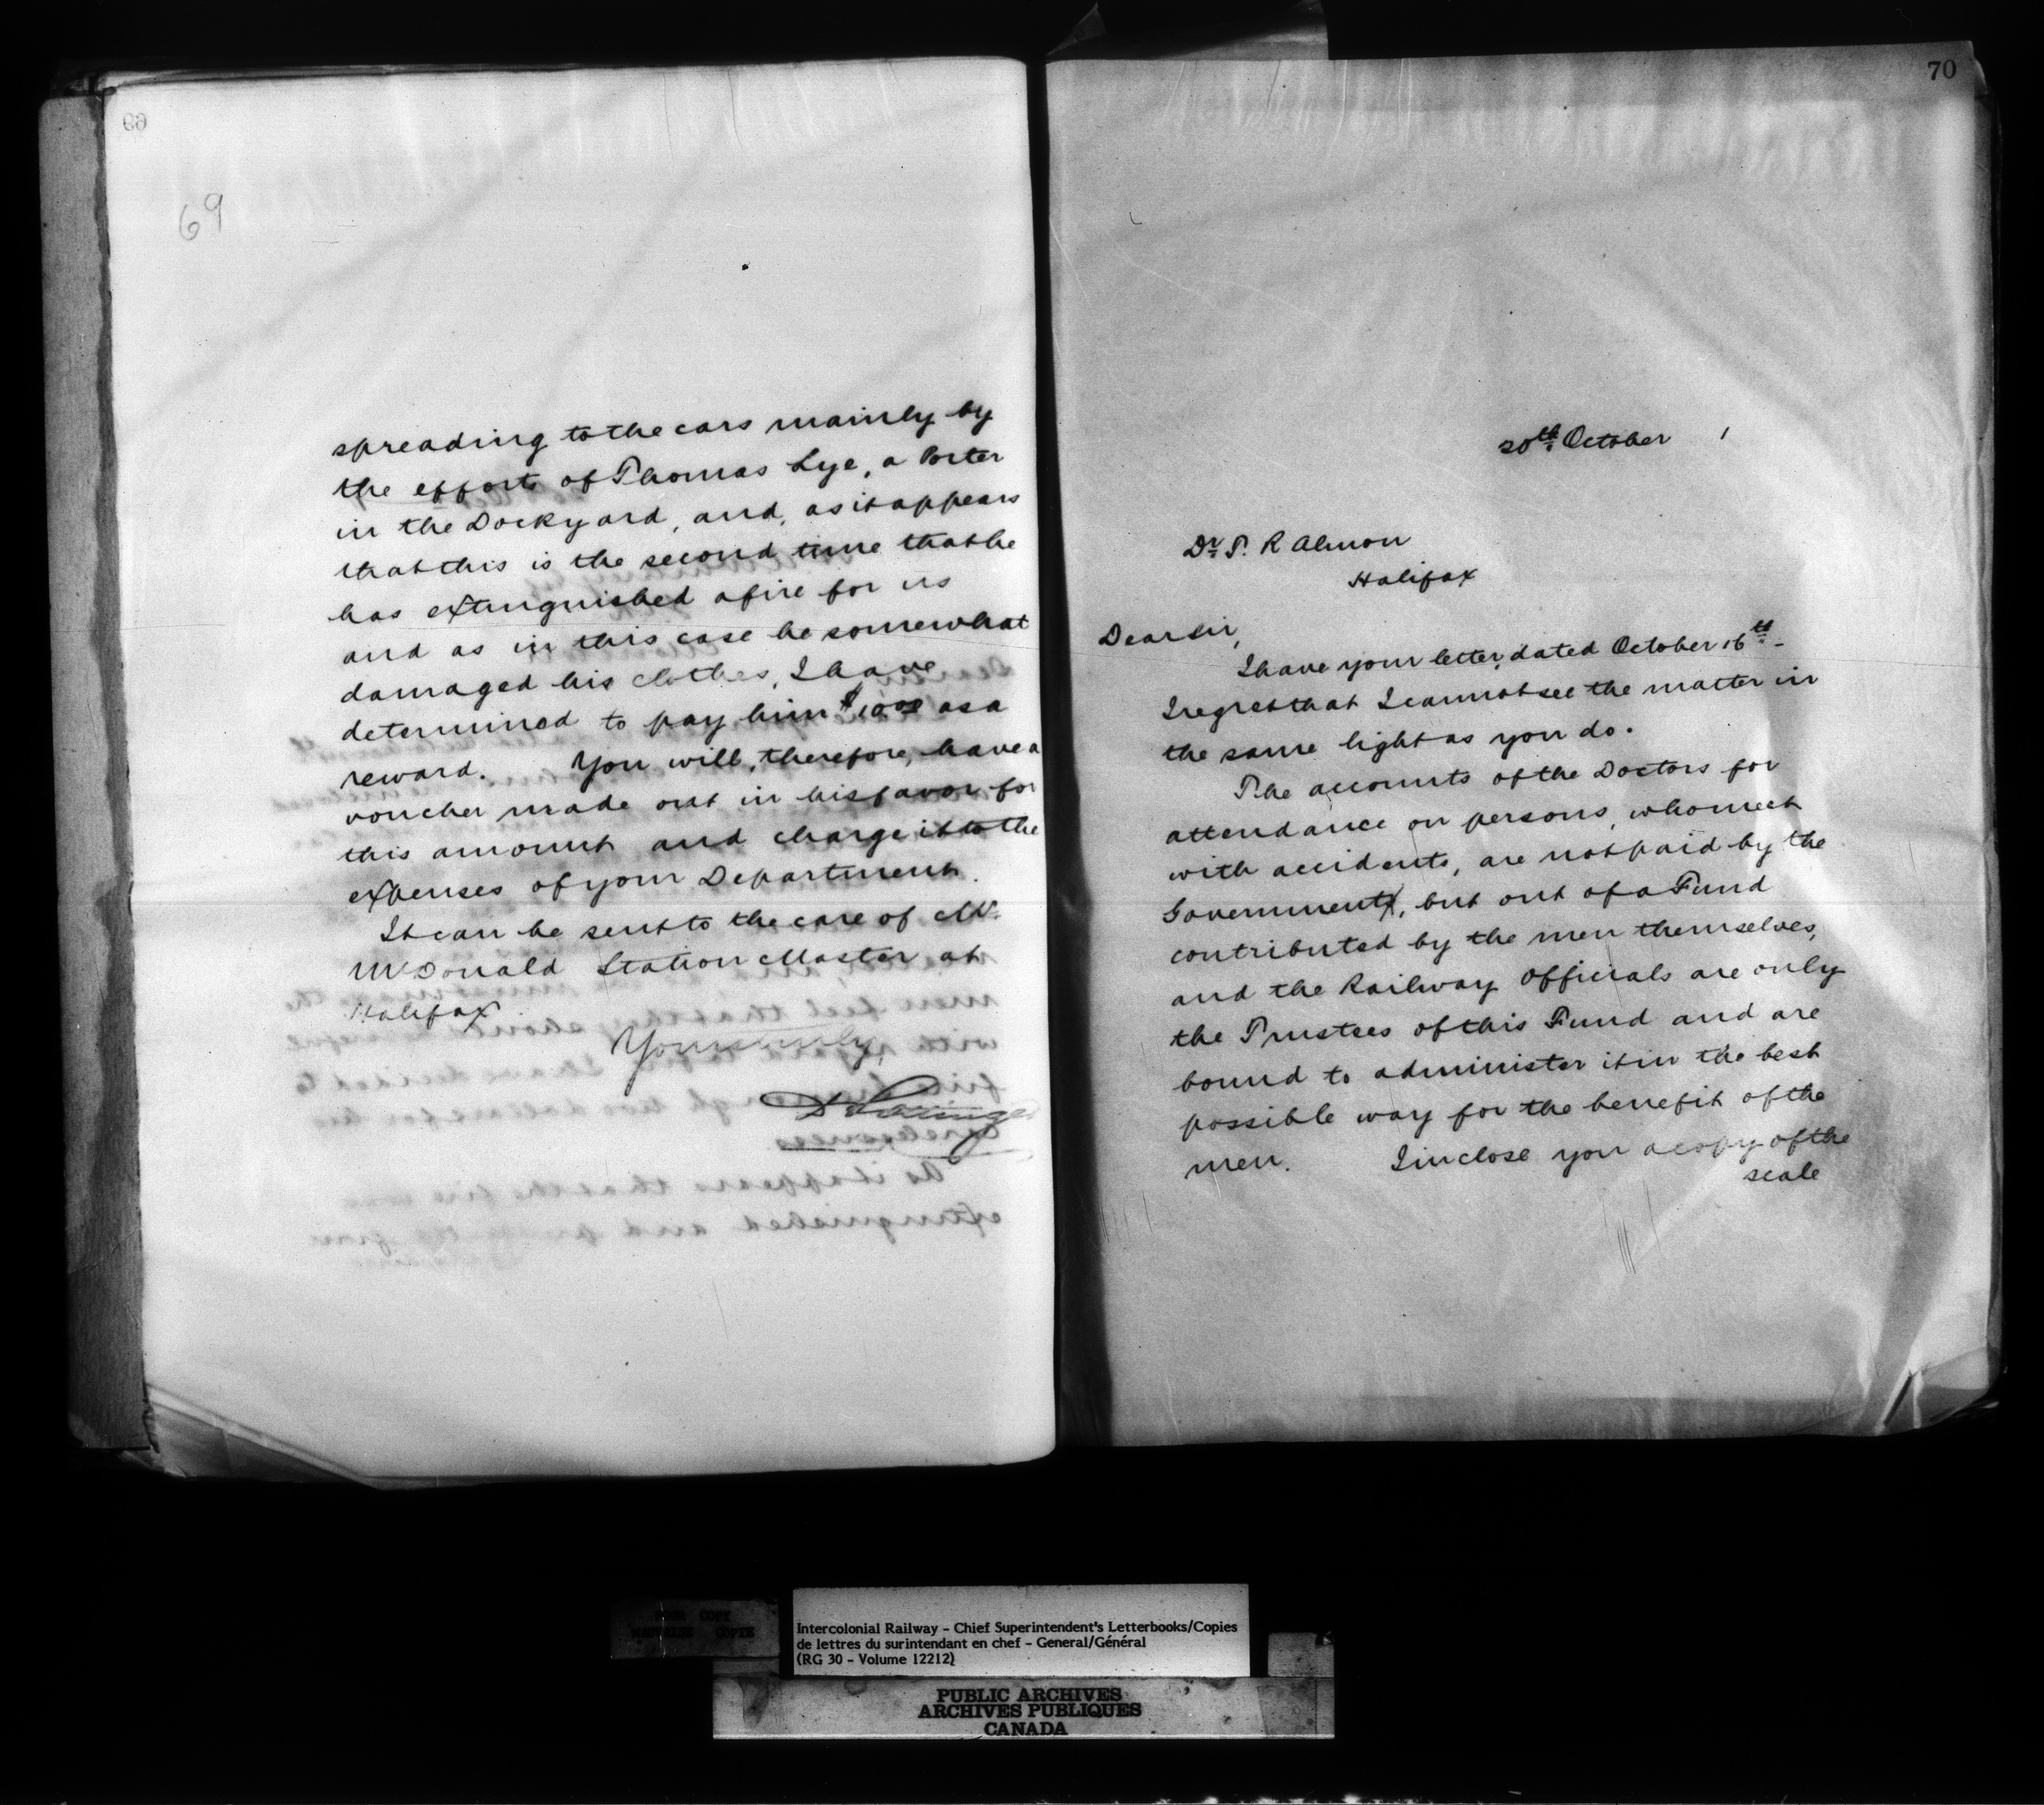 69
spreading to the cars mainly by
the efforts of Thomas Lye, a Porter
in the Dockyard, and, as it appears
that this is the second time that he
has extinguished a fire for us
and as in this case he somewhat
damaged his clothes, I have
determined to pay him $10.00 as a
reward. You will, therefore, have a
voucher made out in his favor for
this amount and charge it to the
expenses of your Department.
It can be sent to the care of Mr.
McDonald Station Master at
Halifax
Yours truly,
D Pottinger
70
20th October 1
Dr. T. R Almon
Halifax
Dear Sir,
I have your letter, dated October 16th -
I regret that I cannot see the matter in
the same light as you do.
The accounts of the Doctors for
attendance on persons, who meet
with accidents, are not paid by the
Government, but out of a Fund
contributed by the men themselves,
and the Railway Officials are only
the Trustees of this Fund and are
bound to administer it in the best
possible way for the benefit of the
men. I inclose you a copy of the
scale
Intercolonial Railway - Chief Superintendent's Letterbooks/Copies
de lettres du surintendant en chef - General/Général
(RG 30 - Volume 12212)
PUBLIC ARCHIVES
ARCHIVES PUBLIQUES
CANADA